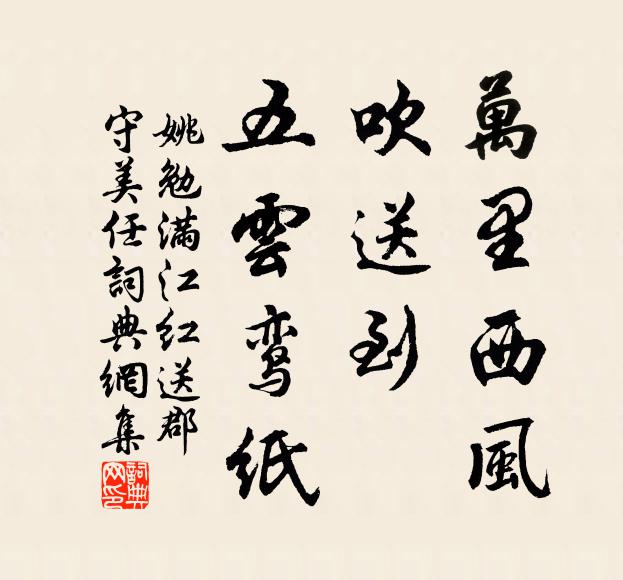 萬里西風
吹送到
五雲鸾紙
姚勉满江红送郡
守美任詞典網集
詞典网印